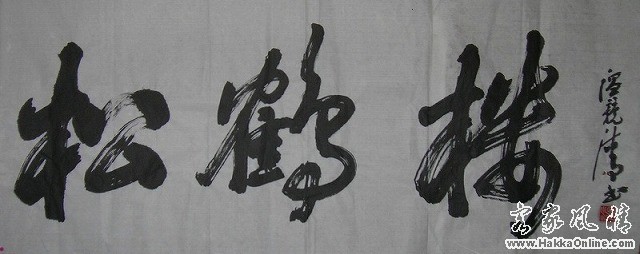 松鹤楼
客家风情
www.HakkaOnline.com